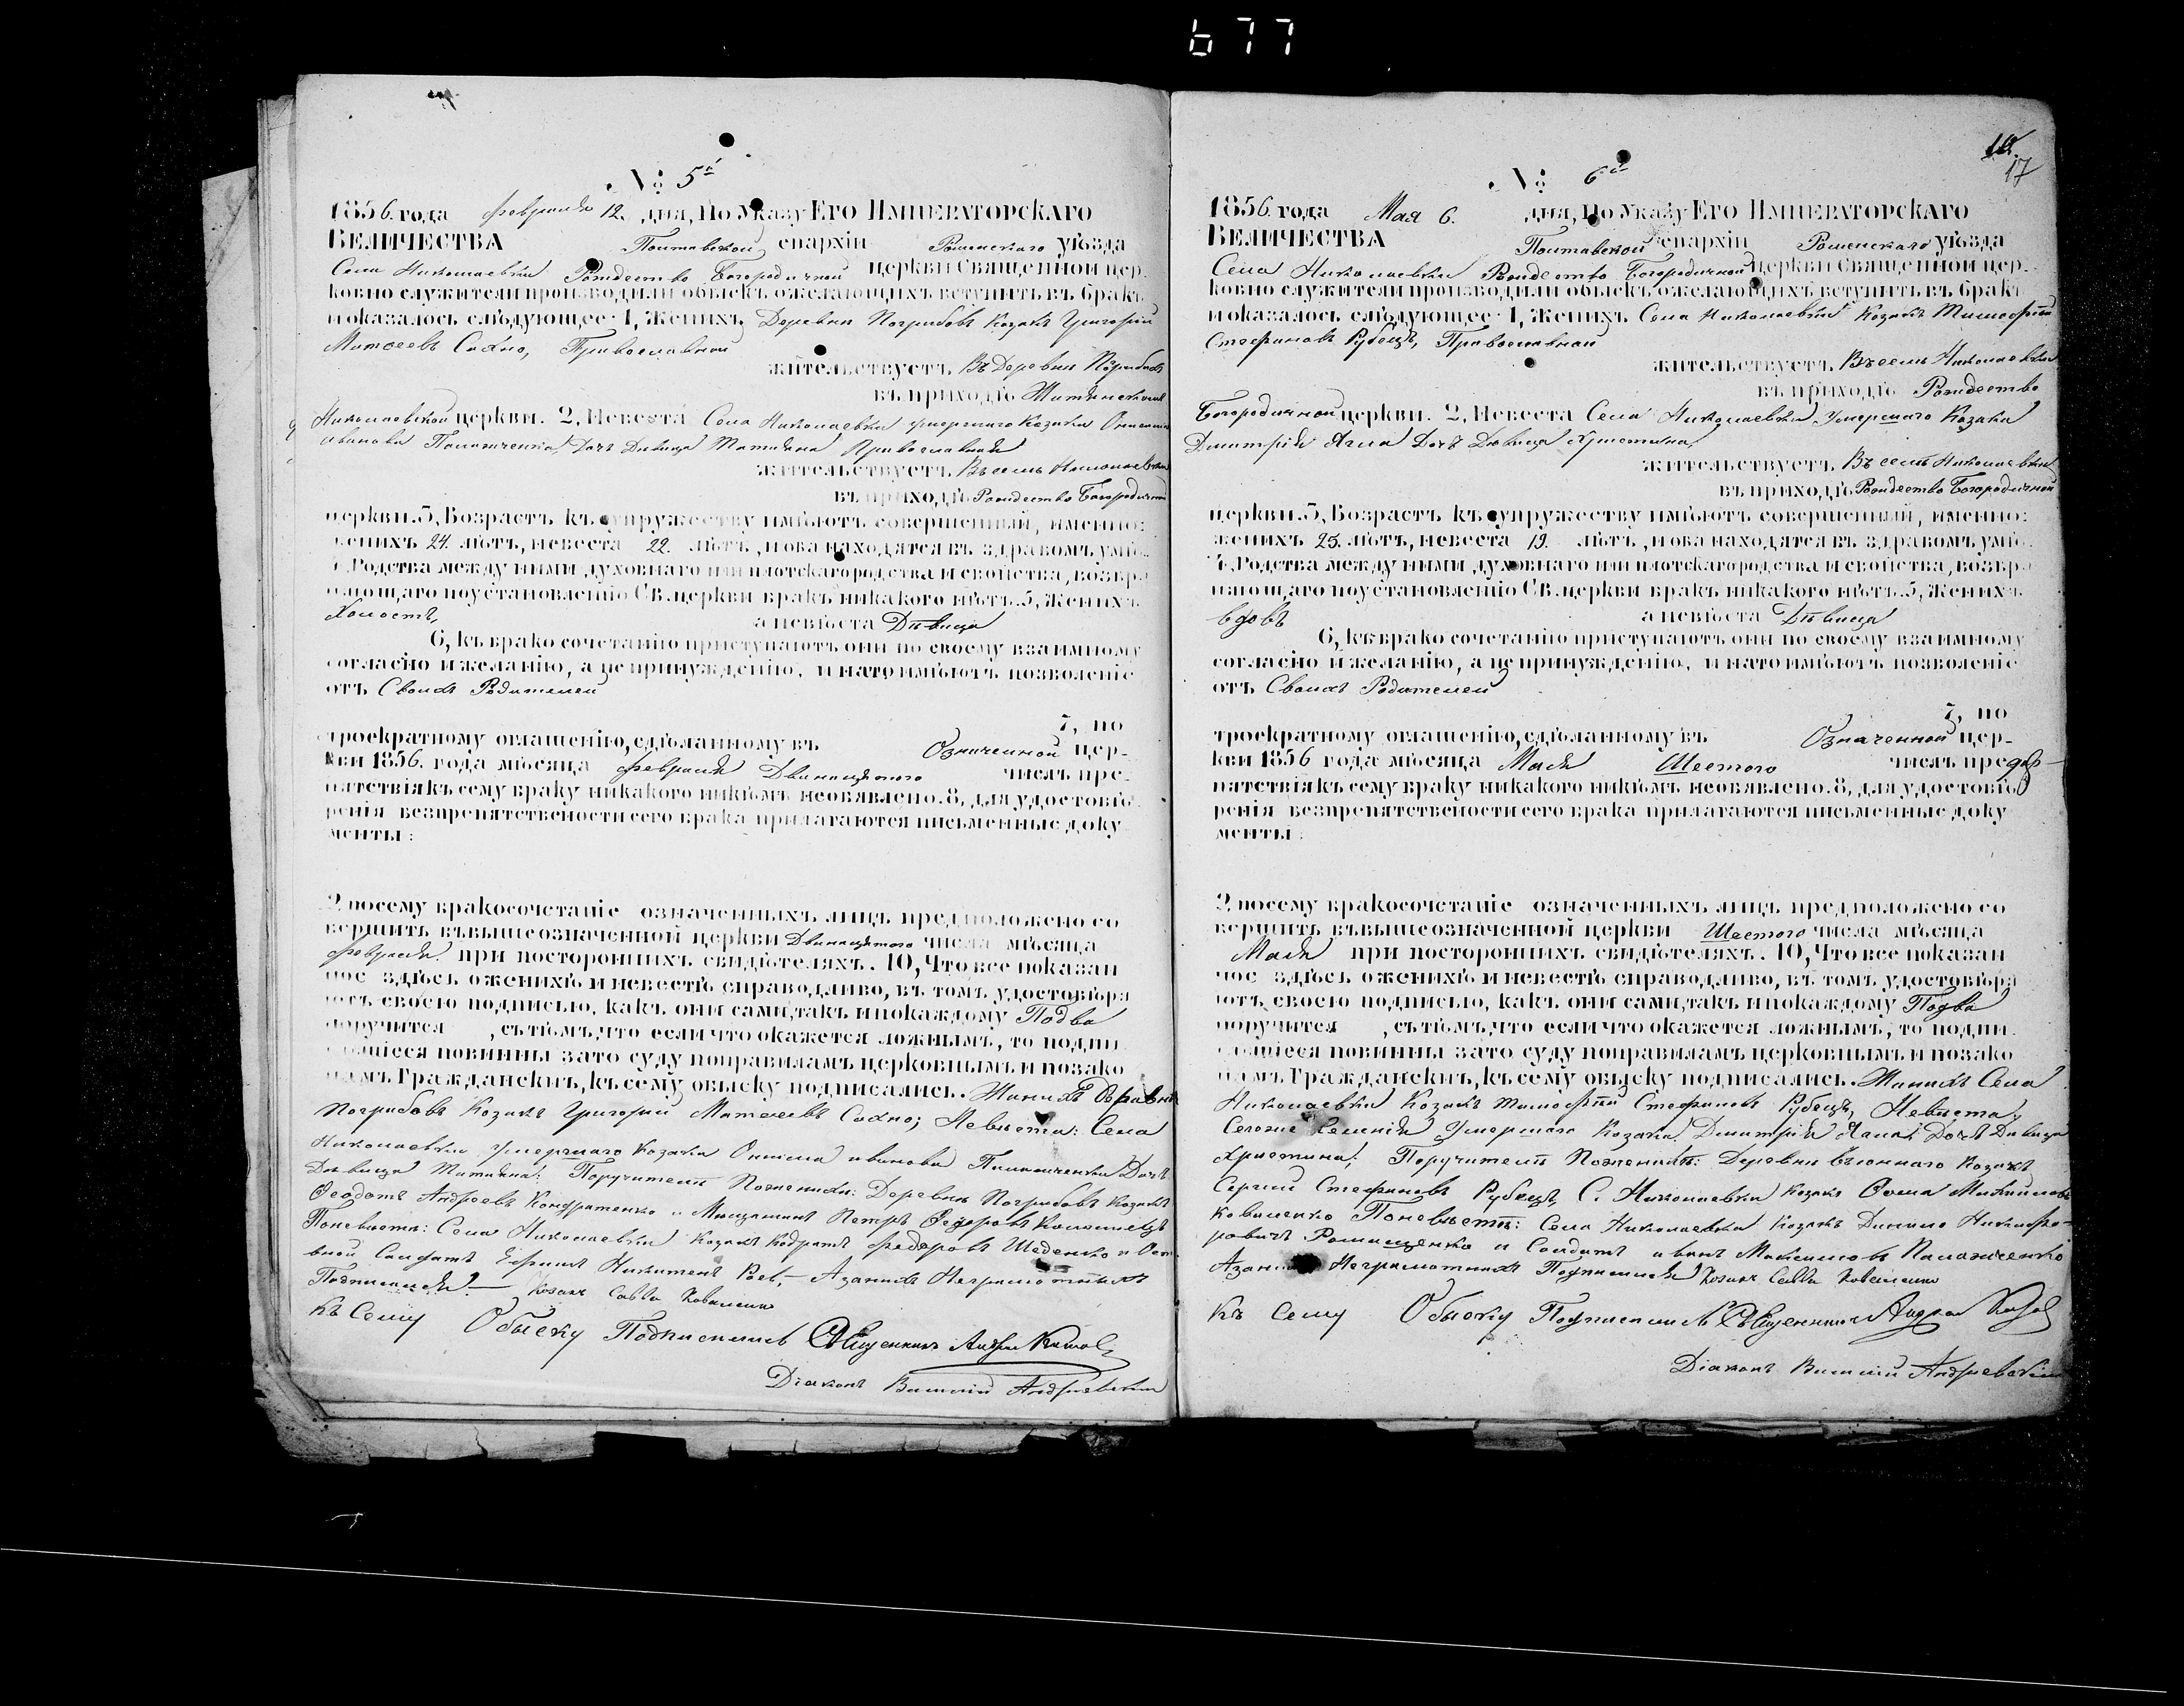 677
№ 5й
1856. года февраля 12. дня, По Указу ЕГО ИМПЕРАТОРСКАГО
ВЕЛИЧЕСТВА Полтавской епархіи Роменскаго уѣзда
Села Николаевки Рождество Богородичной церкви Священной цер-
ковно служители производили обыскъ ожелающихъ вступить въ бракъ
и оказалось слѣдующее: 1, Женихъ Деревни Погрибовъ Козакъ Григорій
Матѳеевъ Сахно, Православной
жительствуетъ Въ Деревни Погрибахъ
въ приходѣ
Николаевской церкви. 2, Невеста Села Николаевки умершаго Козака Онисима
иванова дочь Дѣвица Татіяна Православная
жительствуетъ Въ селѣ Николаевки
въ приходѣ Рождество Богородичной
церкви. 3, Возрастъ къ супружеству имѣютъ совершенный, именно:
женихъ 24. лѣтъ, невеста 22. лѣтъ, и оба находятся въ здравомъ умѣ.
4, Родства между ними духовнаго или плотскаго родства и свойства, возбра
няющаго по установленію Св. церкви бракъ никакого нѣтъ. 5, Женихъ
Холостъ, а невѣста Дѣвица
6, къ брако сочетанію приступаютъ они по своему взаимному
согласію и желанію, а не принужденію, и на то имѣютъ позволеніе
отъ Своихъ Родителей
7, по
троекратному оглашенію, сдѣланному въ Означенной цер-
кви 1856. года мѣсяца февраля Двинацятого числъ пре-
пятствія къ сему браку никакого никѣмъ необявлено. 8, для удостовѣ-
ренія безпрепятствености сего брака прилагаются письменные доку
менты:
9 посему бракосочетаніе означенныхъ лицъ предположено со
вершить въ вышеозначенной церкви Двинацятого числа мѣсяца
февраля. при постороннихъ свидѣтеляхъ. 10, Что все показан
ное здѣсь о женихѣ и невестѣ справодливо, въ томъ удостовѣря
ютъ своею подписью, какъ они сами, такъ и по каждому Подва
поручится , съ тѣмъ, что если что окажется ложнымъ, то подпи
савшіеся повинны за то суду по правиламъ церковнымъ и по зако
намъ Гражданскимъ, къ сему обыску подписались. Жинихъ Деравни
Погрибовъ Козакъ Григорій Матѳеевъ Сахно; Невѣста: Села
Николаевки умершаго Козака Онисима иванова Дочь
Дѣвица Татіяна: Поручители Поженихи: Деревни Погрибовъ Козакъ
Ѳеодотъ Андреевъ Кондратенко и Мищанинъ Петръ Ѳедоровъ Коломиецъ
Поневѣсты: Села Николаевки Козакъ Кодратъ федоровъ Шеденко и
Солдатъ Ефимъ Никитенъ Азанихъ Неграмотныхъ
Подписался: Козакъ Савва Коваленко
Къ Сему Обыску Подписались Священникъ Андрей
Діаконъ Василій Андріевскій
17
№ 6й
1856. года Мая 6. дня, По Указу ЕГО ИМПЕРАТОРСКАГО
ВЕЛИЧЕСТВА Полтавской епархіи Роменскаго уѣзда
Села Николаевки Рождество Богородичной церкви Священной цер-
ковно служители производили обыскъ ожелающихъ вступить въ бракъ
и оказалось слѣдующее: 1, Женихъ Села Николаевки Козакъ Тимофѣй
Стефановъ Рубецъ, Православной
жительствуетъ Въ селѣ Николаевки
въ приходѣ Рождество
Богородичной церкви. 2, Невеста Села Николаевки Умершаго Козака
Димитрія Дочь Дѣвица Христина,
жительствуетъ Въ селѣ Николаевки
въ приходѣ Рождество Богородичной
церкви. 3, Возрастъ къ супружеству имѣютъ совершенный, именно:
женихъ 25. лѣтъ, невеста 19. лѣтъ, и оба находятся въ здравомъ умѣ.
4, Родства между ними духовнаго или плотскаго родства и свойства, возбра
няющаго по установленію Св. церкви бракъ никакого нѣтъ. 5, Женихъ
вдовъ а невѣста Дѣвица
6, къ брако сочетанію приступаютъ они по своему взаимному
согласію и желанію, а не принужденію, и на то имѣютъ позволеніе
отъ Своихъ Родителей
7, по
троекратному оглашенію, сдѣланному въ Означенной цер-
кви 1856 года мѣсяца Мая Шестого числъ пре
пятствія къ сему браку никакого никѣмъ необявлено. 8, для удостовѣ
ренія безпрепятствености сего брака прилагаются письменные доку
менты:
9 посему бракосочетаніе означенныхъ лицъ предположено со
вершить въ вышеозначенной церкви Шестого числа мѣсяца
Мая при постороннихъ свидѣтеляхъ. 10, Что все показан
ное здѣсь о женихѣ и невестѣ справодливо, въ томъ удостовѣря
ютъ своею подписью, какъ они сами, такъ и по каждому Подва
поручится , съ тѣмъ, что если что окажется ложнымъ, то подпи
савшіеся повинны за то суду по правиламъ церковнымъ и по зако
намъ Гражданскимъ, къ сему обыску подписались. Жинихъ Села
Николаевки Козакъ тимофѣй Стефановъ Рубецъ, Невѣста:
Умершаго Козака Димитрія Дочь Дѣвица
Христина; Поручители Поженихѣ: Деревни Козакъ
Сергій Стефановъ Рубецъ, С. Николаевки Козакъ Ѳома Михайловъ
Коваленко Поневѣстѣ: Села Николаевки Козакъ Данило Никифо-
ровичъ Ромащенко и Солдатъ иванъ Максимовъ
Азанихъ Неграмотныхъ Подписался Козакъ Савва Коваленко
Къ Сему Обыску Подписались Священникъ Андрей
Діаконъ Василій Андріевскій